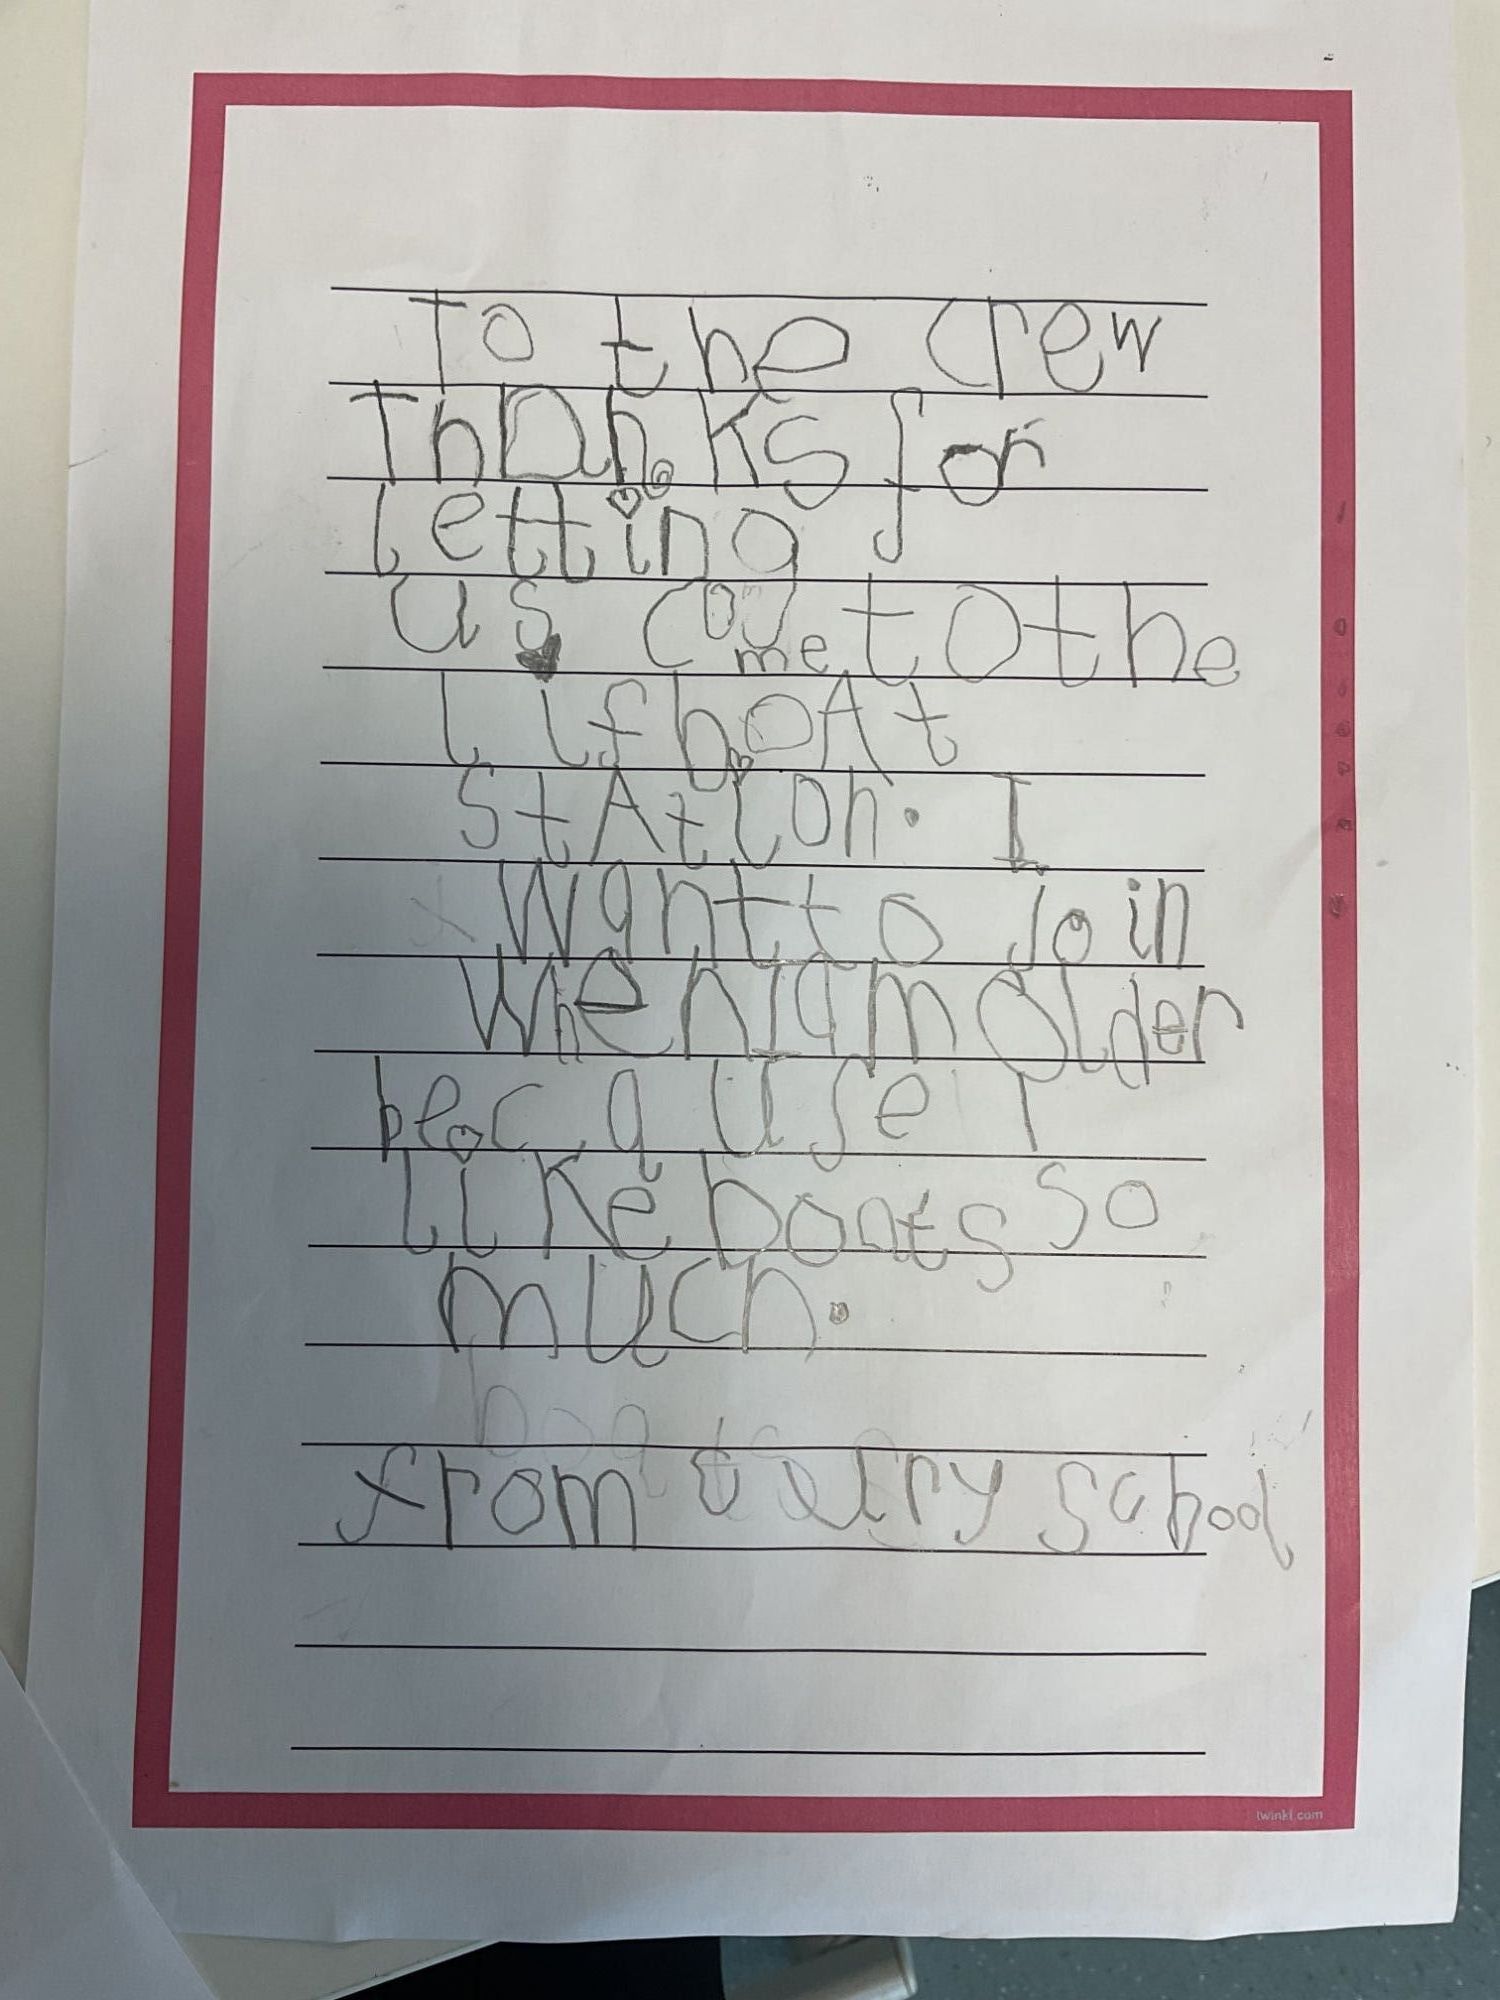 To the crew
Thanks for
letting
us come to the
lifboAt
stAtion. I
want to join
when I am older
because I
like boats so
much.
from school
twinkl.com